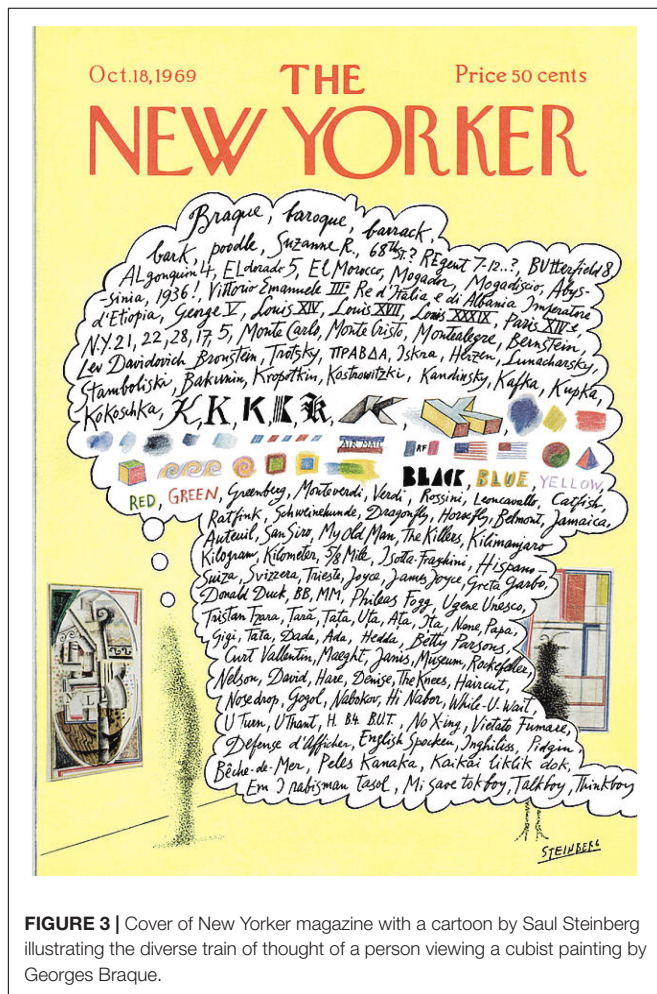 Oct.18,1969
THE
Price 50 cents
NEW YORKER
Braque, baroque, barrack,
bark, poodle, Suzanne R., 68th St.? REgent 7-12..?, BUtterfield 8,
ALgonquin 4, ELdorado 5, El Morocco, Mogador, Mogadiscio, Abys-
-sinia, 1936! Vittorio Emanuele III: Re d'Italia e di Albania Imperatore
d'Etiopia, George V, Louis XIV, Louis XVII, Louis XXXIX, Paris XIVe
N.Y. 21, 22, 28, 17, 5, Monte Carlo, Monte Cristo, Montealegre, Bernstein,
Lev Davidovich Bronstein, Trotsky, ПРАВДА, Iskra, Herzen, Lunacharsky,
Stamboliski, Bakunin, Kropotkin, Kostrowitzki, Kandinsky, Kafka, Kupka,
Kokoschka, K, K, K, K, K, K, K,
AIR MAIL RF
BLACK, BLUE, YELLOW,
RED, GREEN, Greenberg, Monteverdi, Verdi, Rossini, Leoncavallo, Catfish,
Ratfink, Schweinehunde, Dragonfly, Horsefly, Belmont, Jamaica,
Auteuil, San Siro, My Old Man, The Killers, Kilimanjaro
Kilogram, Kilometer, 5/8 Mile, Isotta-Fraschini, Hispano-
Suiza, Svizzera, Trieste, Joyce, James Joyce, Greta Garbo,
Donald Duck, BB, MM, Phileas Fogg, Ugene Unesco,
Tristan Tzara, Tară, Tata, Uta, Ata, Ita, None, Papa,
Gigi, Tata, Dada, Ada, Hedda, Betty Parsons,
Curt Vallentin, Maeght, Janis, Museum, Rockefeller,
Nelson, David, Hare, Denise, The Knees, Haircut,
Nosedrop, Gogol, Nabokov, Hi Nabor, While-U-Wait,
U Turn, U Thant, H. B4. BUT., No X-ing, Vietato Fumare,
Défense d'Afficher, English Spoken, Inghiliss, Pidgin
Bêche-de-Mer, Peles Kanaka, Kaikai liklik dok,
Em I rabisman tasol, Mi save tokboy, Talkboy, Thinkboy
STEINBERG
FIGURE 3 | Cover of New Yorker magazine with a cartoon by Saul Steinberg
illustrating the diverse train of thought of a person viewing a cubist painting by
Georges Braque.